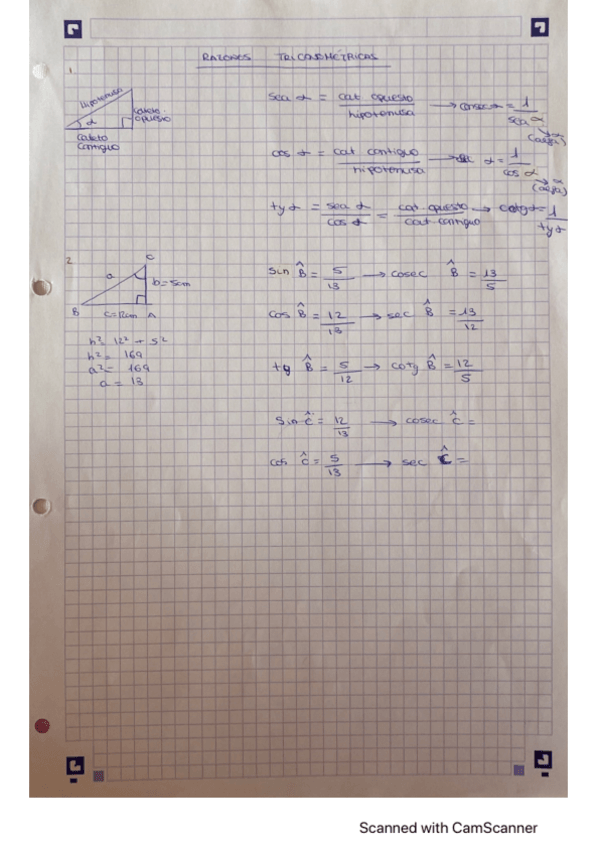 RAZONES TRIGONOMÉTRICAS
1
hipotenusa
cateto opuesto
α
cateto contiguo
sen α = cat opuesto / hipotenusa → cosec α = 1 / sen α
(alfa)
cos α = cat contiguo / hipotenusa → α = 1 / cos α
(alfa)
tg α = sen α / cos α = cat. opuesto / cat contiguo → cotg α = 1 / tg α
2
C
a
b = 5cm
B c = 12cm A
h² = 12² + 5²
h² = 169
a² = 169
a = 13
sin B̂ = 5/13 → cosec B̂ = 13/5
cos B̂ = 12/13 → sec B̂ = 13/12
tg B̂ = 5/12 → cotg B̂ = 12/5
sin Ĉ = 12/13 → cosec Ĉ =
cos Ĉ = 5/13 → sec Ĉ =
Scanned with CamScanner